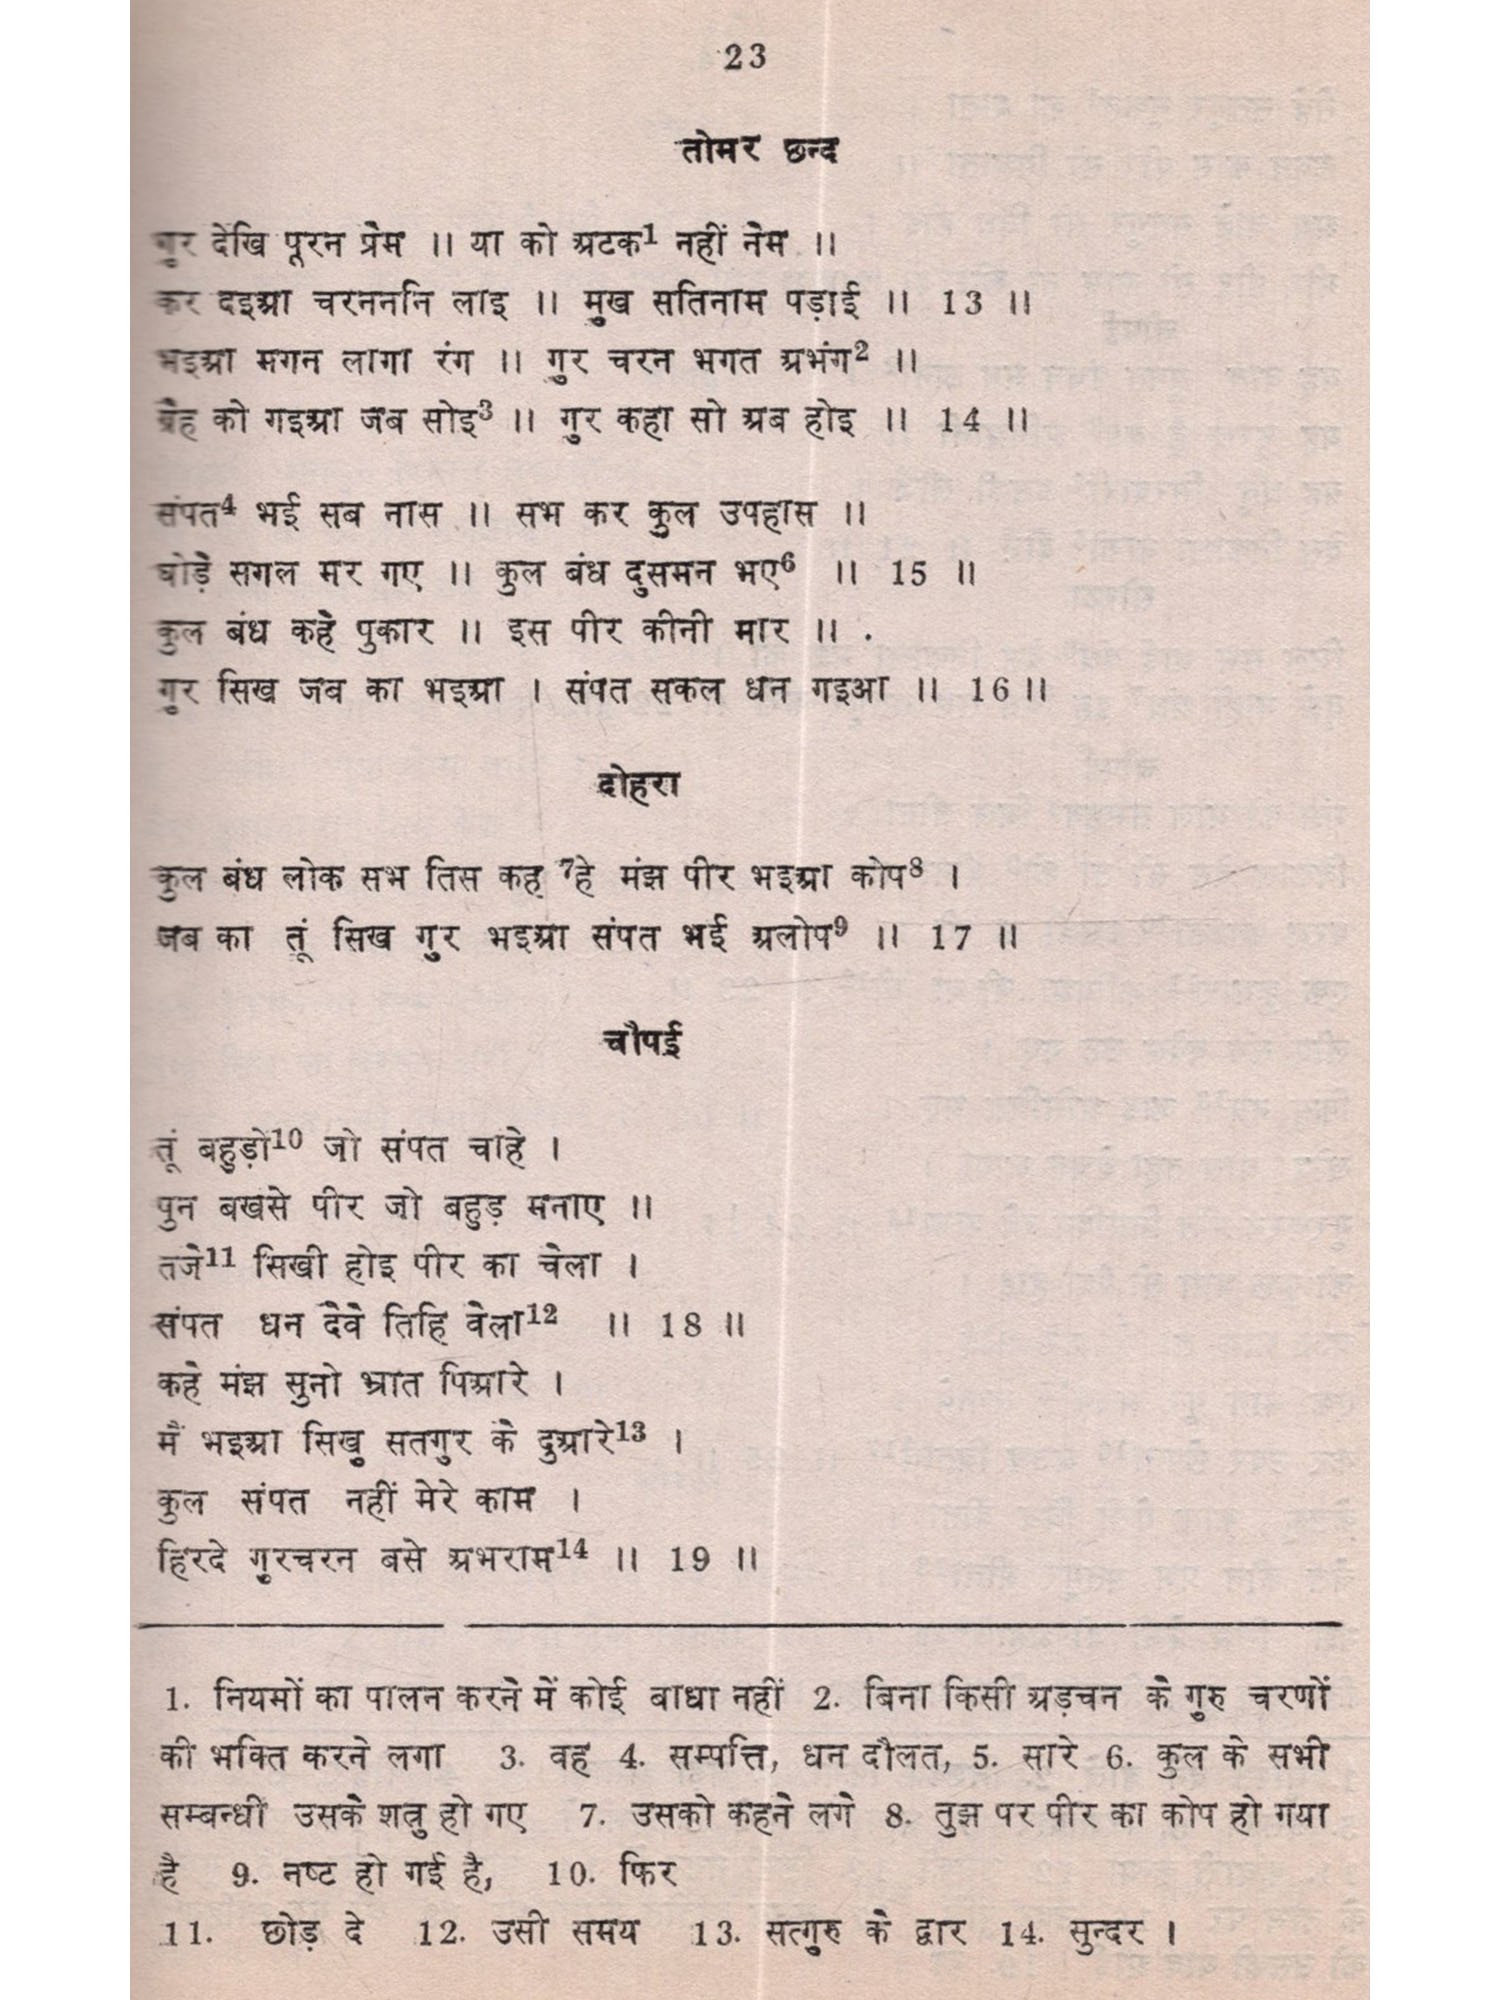 23
तोमर छन्द
गुर देखि पूरन प्रेम ॥ या को अटक¹ नहीं नेम ॥
कर दइआ चरनननि लाइ ॥ मुख सतिनाम पड़ाई ॥ 13 ॥
भइआ मगन लागा रंग ॥ गुर चरन भगत अभंग² ॥
ग्रेह को गइआ जब सोइ³ ॥ गुर कहा सो अब होइ ॥ 14 ॥
संपत⁴ भई सब नास ॥ सभ कर कुल उपहास ॥
घोड़े सगल मर गए ॥ कुल बंध दुसमन भए⁶ ॥ 15 ॥
कुल बंध कहे पुकार ॥ इस पीर कीनी मार ॥ .
गुर सिख जब का भइआ । संपत सकल धन गइआ ॥ 16 ॥
दोहरा
कुल बंध लोक सभ तिस कह ⁷हे मंझ पीर भइआ कोप⁸ ।
जब का तूं सिख गुर भइआ संपत भई अलोप⁹ ॥ 17 ॥
चौपई
तूं बहुड़ो¹⁰ जो संपत चाहे ।
पुन बखसे पीर जो बहुड़ मनाए ॥
तजे¹¹ सिखी होइ पीर का चेला ।
संपत धन देवे तिहि वेला¹² ॥ 18 ॥
कहे मंझ सुनो भ्रात पिआरे ।
मैं भइआ सिखु सतगुर के दुआरे¹³ ।
कुल संपत नहीं मेरे काम ।
हिरदे गुरचरन बसे अभराम¹⁴ ॥ 19 ॥
1. नियमों का पालन करने में कोई बाधा नहीं 2. बिना किसी अड़चन के गुरु चरणों
की भक्ति करने लगा 3. वह 4. सम्पत्ति, धन दौलत, 5. सारे 6. कुल के सभी
सम्बन्धी उसके शत्रु हो गए 7. उसको कहने लगे 8. तुझ पर पीर का कोप हो गया
है 9. नष्ट हो गई है, 10. फिर
11. छोड़ दे 12. उसी समय 13. सत्गुरु के द्वार 14. सुन्दर ।